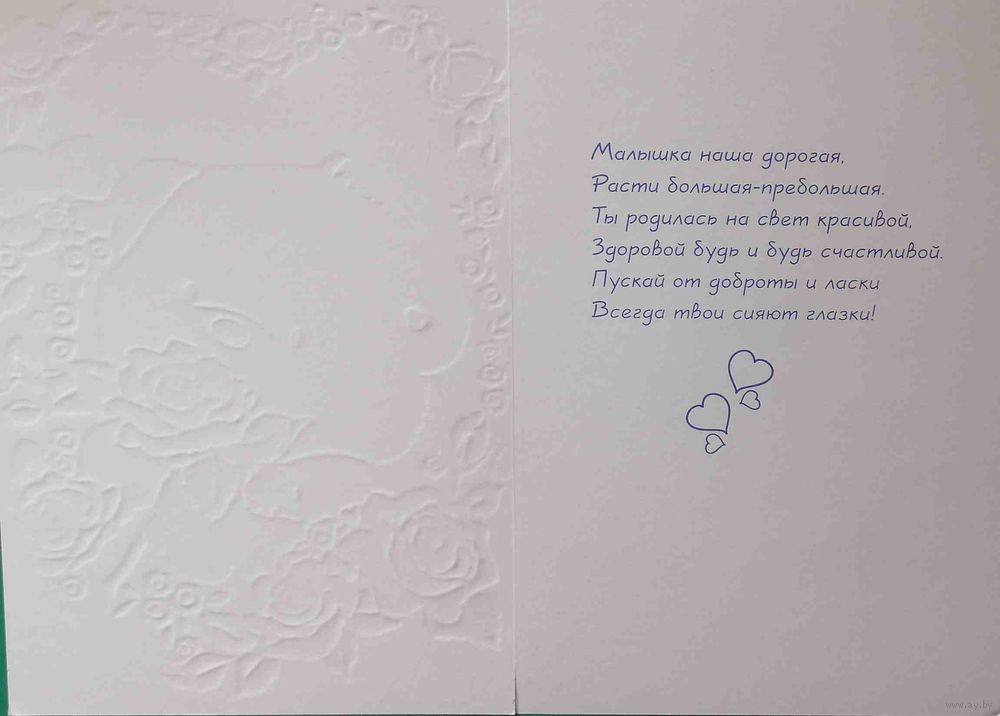 Малышка наша дорогая,
Расти большая-пребольшая.
Ты родилась на свет красивой,
Здоровой будь и будь счастливой.
Пускай от доброты и ласки
Всегда твои сияют глазки!
www.ay.by